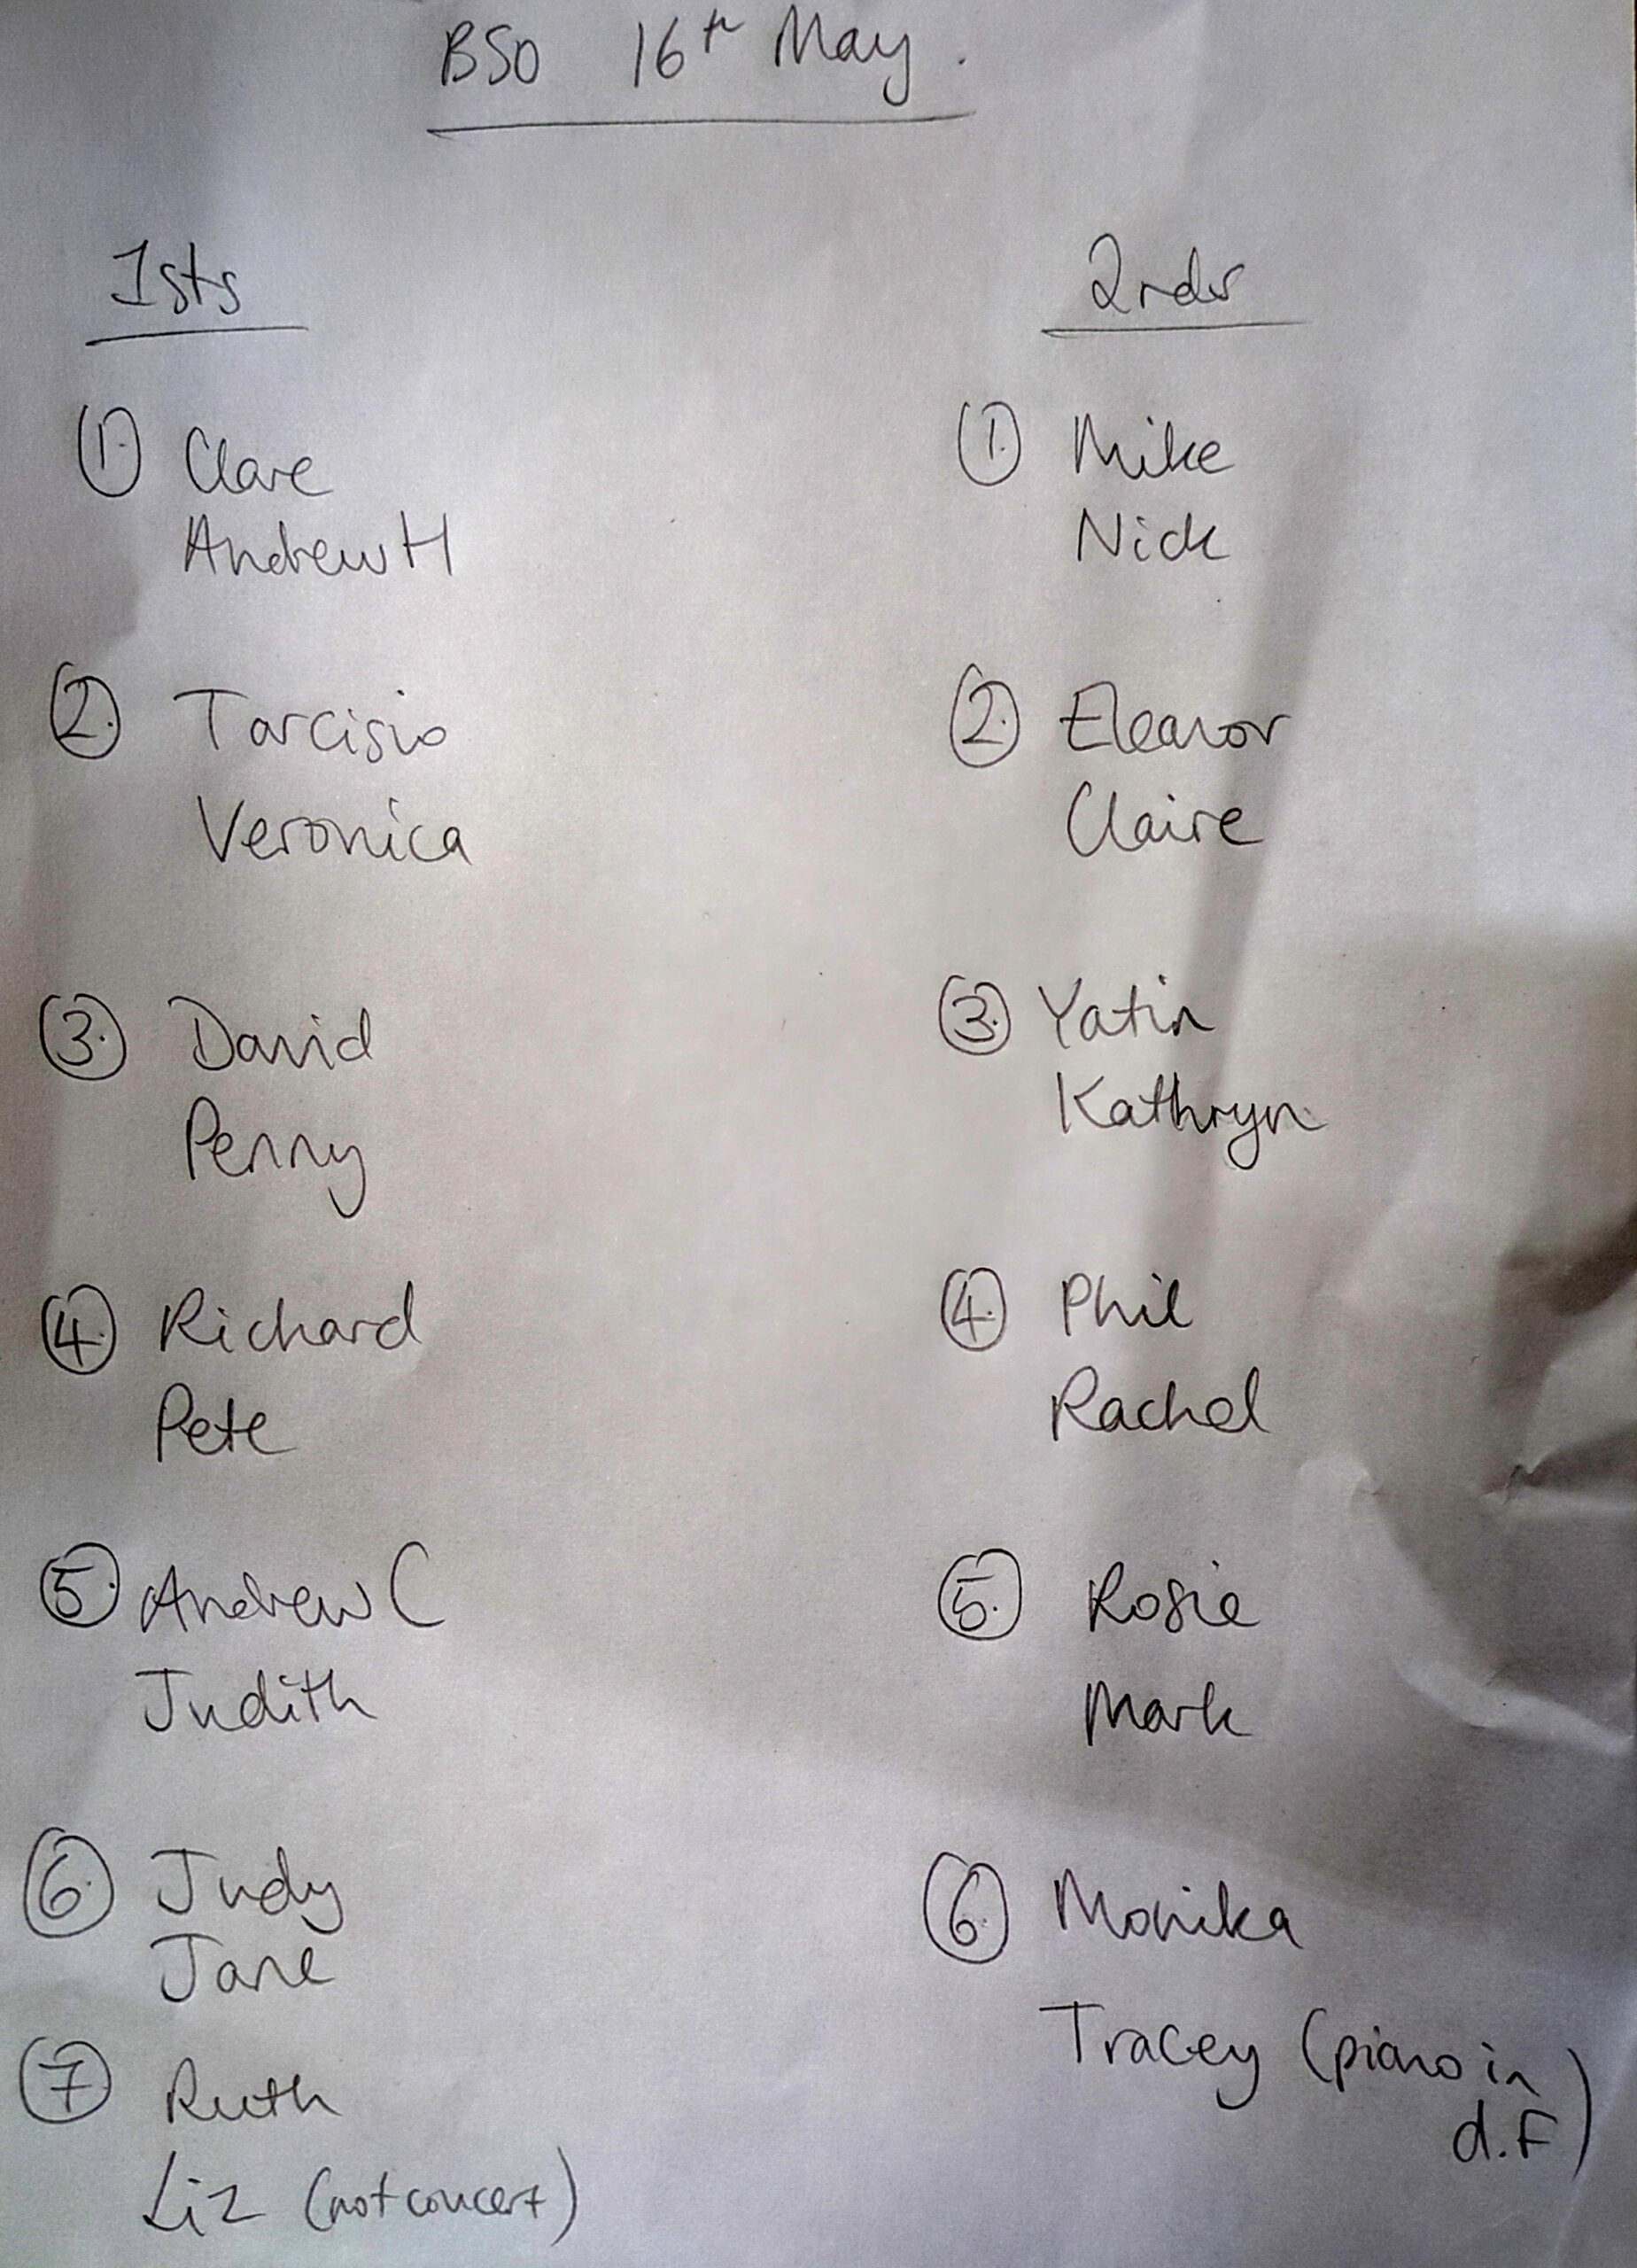 BSO 16th May.
1sts
1. Clare
Andrew H
2. Tarcisio
Veronica
3. David
Penny
4. Richard
Pete
5. Andrew C
Judith
6. Judy
Jane
7 Ruth
Liz (not concert)
2nds
1. Mike
Nick
2. Eleanor
Claire
3. Yatin
Kathryn
4. Phil
Rachel
5. Rosie
Mark
6. Monika
Tracey (piano in
d.F)